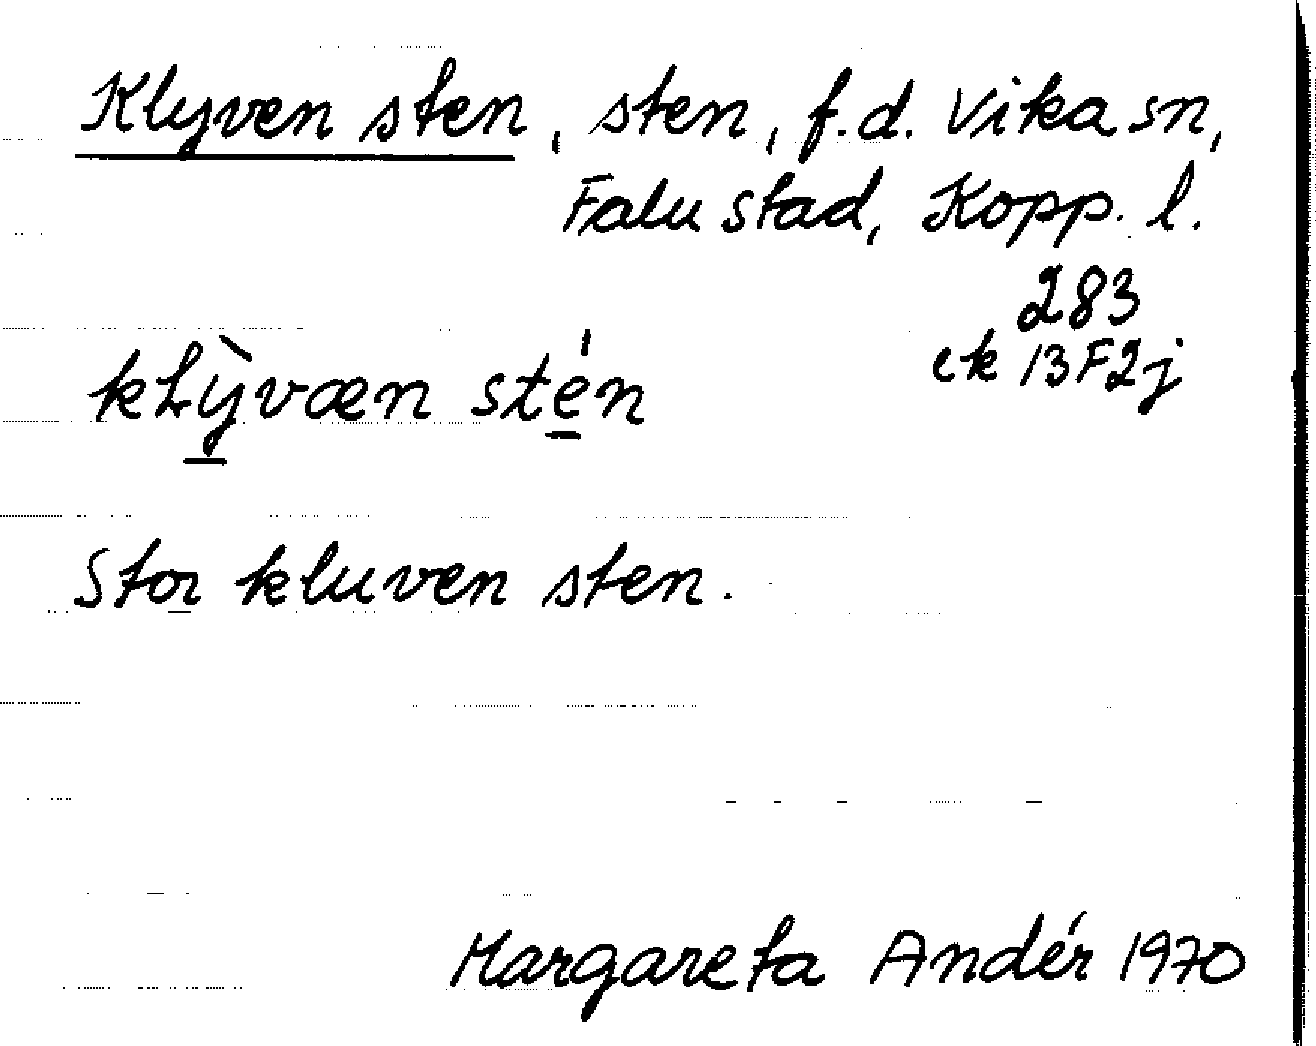 Klyven sten, sten, f.d. Vika sn,
Falu stad, Kopp. l.
283
ek 13F2j
kLỳvæn stén
Stor kluven sten.
Margareta Andér 1970